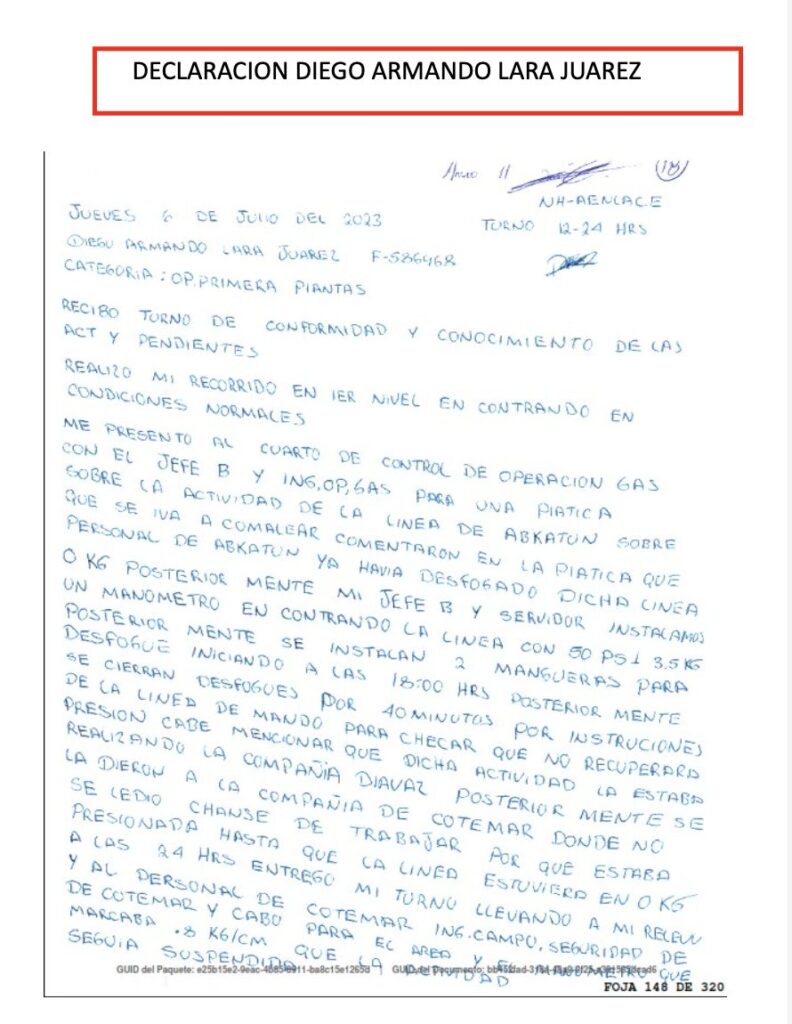 DECLARACION DIEGO ARMANDO LARA JUAREZ
Anexo 11
(18)
NH-AENLACE
JUEVES 6 DE JULIO DEL 2023
TURNO 12-24 HRS
DIEGO ARMANDO LARA JUAREZ F-586468
CATEGORIA: OP. PRIMERA PLANTAS
RECIBO TURNO DE CONFORMIDAD Y CONOCIMIENTO DE LAS
ACT Y PENDIENTES
REALIZO MI RECORRIDO EN 1ER NIVEL EN CONTRANDO EN
CONDICIONES NORMALES
ME PRESENTO AL CUARTO DE CONTROL DE OPERACION GAS
CON EL JEFE B Y ING, OP, GAS PARA UNA PLATICA
SOBRE LA ACTIVIDAD DE LA LINEA DE ABKATUN SOBRE
QUE SE IVA A COMALEAR COMENTARON EN LA PLATICA QUE
PERSONAL DE ABKATUN YA HAVIA DESFOGADO DICHA LINEA
0 KG POSTERIOR MENTE MI JEFE B Y SERVIDOR INSTALAMOS
UN MANOMETRO EN CONTRANDO LA LINEA CON 50 PSI 3.5 KG
POSTERIOR MENTE SE INSTALAN 2 MANGUERAS PARA
DESFOGUE INICIANDO A LAS 18:00 HRS POSTERIOR MENTE
SE CIERRAN DESFOGUES POR 40 MINUTOS POR INSTRUCIONES
DE LA LINEA DE MANDO PARA CHECAR QUE NO RECUPERARA
PRESION CABE MENCIONAR QUE DICHA ACTIVIDAD LA ESTABA
REALIZANDO LA COMPAÑIA DIAVAZ POSTERIOR MENTE SE
LA DIERON A LA COMPAÑIA DE COTEMAR DONDE NO
SE LEDIO CHANSE DE TRABAJAR POR QUE ESTABA
PRESIONADA HASTA QUE LA LINEA ESTUVIERA EN 0 KG
A LAS 24 HRS ENTREGO MI TURNO LLEVANDO A MI RELEVO
Y AL PERSONAL DE COTEMAR ING. CAMPO, SEGURIDAD DE
DE COTEMAR Y CABO PARA EL AREA Y EL MANOMETRO QUE
MARCABA .8 KG/CM QUE LA ACTIVIDAD
SEGUIA SUSPENDIDA
GUID del Paquete: GUID del Documento:
FOJA 148 DE 320